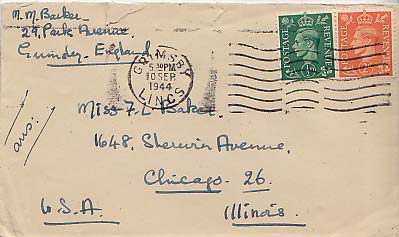 M. M. Barker
27, Park Avenue
Grimsby - England
GRIMSBY
5.30PM
10 SEP
1944
LINCS
POSTAGE REVENUE
POSTAGE REVENUE
ans:
Miss F. L Baker
1648, Sherwin Avenue,
Chicago - 26.
Illinois.
U.S.A.